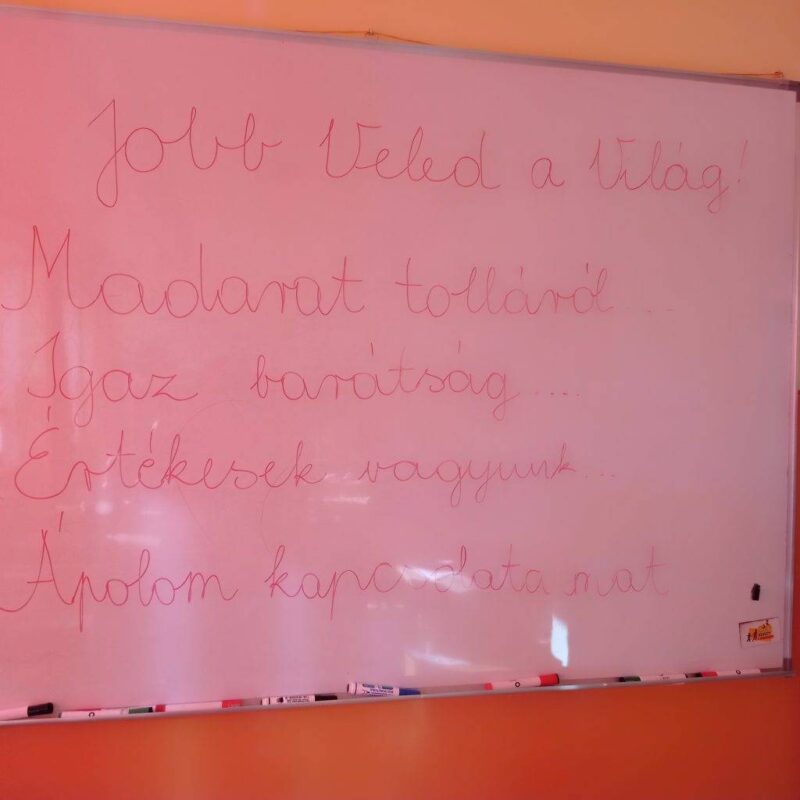 Jobb Veled a Világ!
Madarat tolláról...
Igaz barátság....
Értékesek vagyunk...
Ápolom kapcsolataimat